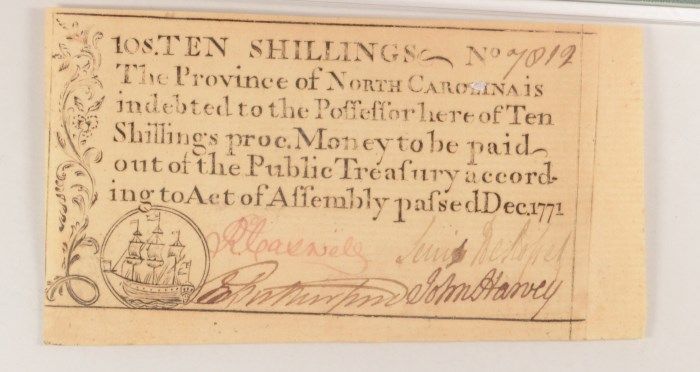 10s. TEN SHILLINGS No 7812
The Province of NORTH CAROLINA is
indebted to the Poſſeſſor here of Ten
Shillings proc. Money to be paid
out of the Public Treaſury accord-
ing to Act of Aſſembly paſsed Dec. 1771
R Caswell Lewis De Rosset
John Harvey